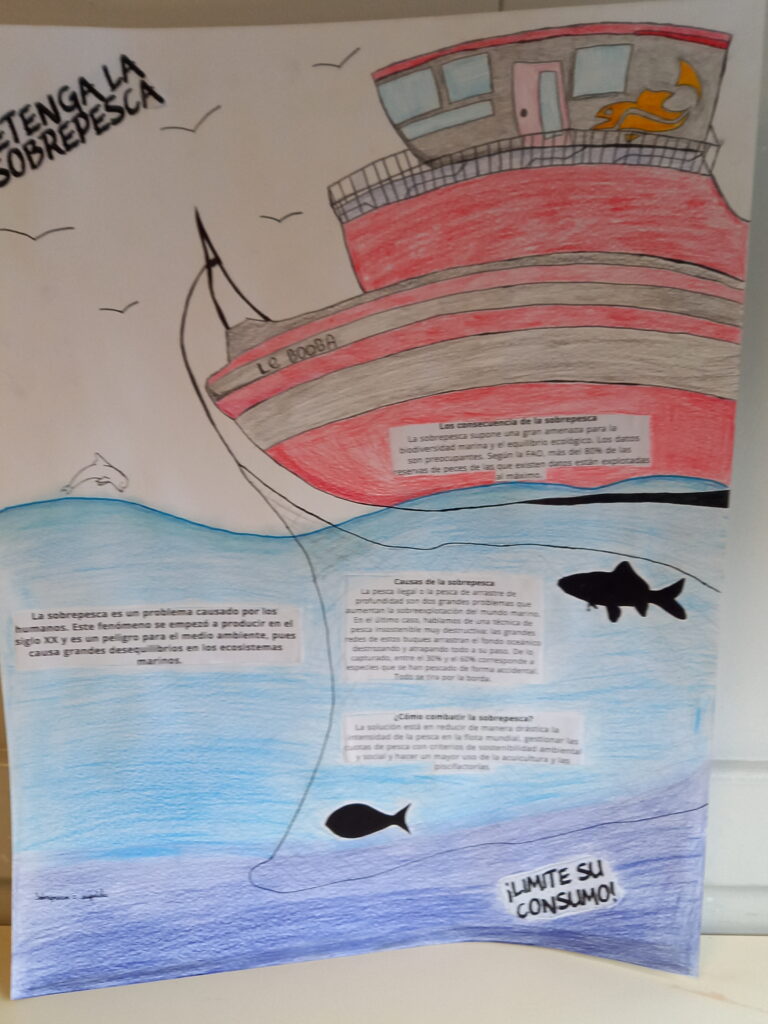 ETENGA LA
SOBREPESCA
Le BOOBA
Los consecuencia de la sobrepesca
La sobrepesca supone una gran amenaza para la
biodiversidad marina y el equilibrio ecológico. Los datos
son preocupantes. Según la FAO, más del 80% de las
reservas de peces de las que existen datos están explotadas
al máximo.
La sobrepesca es un problema causado por los
humanos. Este fenómeno se empezó a producir en el
siglo XX y es un peligro para el medio ambiente, pues
causa grandes desequilibrios en los ecosistemas
marinos.
Causas de la sobrepesca
La pesca ilegal o la pesca de arrastre de
profundidad son dos grandes problemas que
aumentan la sobreexplotación del mundo marino.
En el último caso, hablamos de una técnica de
pesca insostenible muy destructiva: las grandes
redes de estos buques arrastran el fondo oceánico
destrozando y atrapando todo a su paso. De lo
capturado, entre el 30% y el 60% corresponde a
especies que se han pescado de forma accidental.
Todo se tira por la borda.
¿Cómo combattir la sobrepesca?
La solución está en reducir de manera drástica la
intensidad de la pesca en la flota mundial, gestionar las
cuotas de pesca con criterios de sostenibilidad ambiental
y social y hacer un mayor uso de la acuicultura y las
piscifactorías.
¡LIMITE SU
CONSUMO!